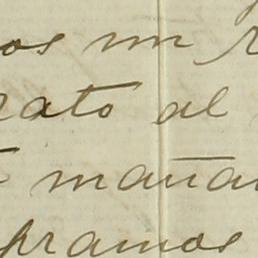 os un
rato al
mañan
pramos